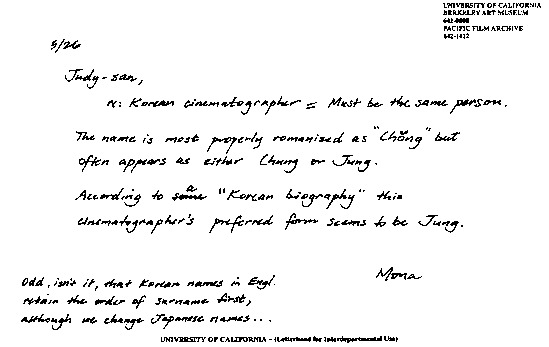 UNIVERSITY OF CALIFORNIA
BERKELEY ART MUSEUM
642-0808
PACIFIC FILM ARCHIVE
642-1412
5/26
Judy-san,
re: Korean cinematographer = Must be the same person.
The name is most properly romanized as "Chŏng" but
often appears as either Chung or Jung.
According to a "Korean biography" this
cinematographer's preferred form seems to be Jung.
Mona
Odd, isn't it, that Korean names in Engl.
retain the order of surname first,
although we change Japanese names...
UNIVERSITY OF CALIFORNIA - (Letterhead for Interdepartmental Use)